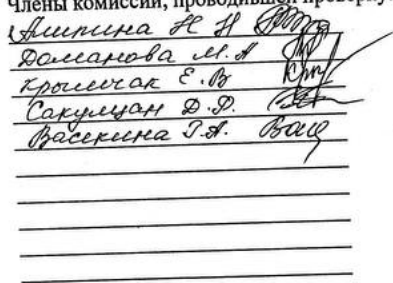 Члены комиссии, проводившей проверку
Н Н
Доманова М.А
Крымчак Е.В
Сакулцан Д.Ф.
Васекина Т.А.